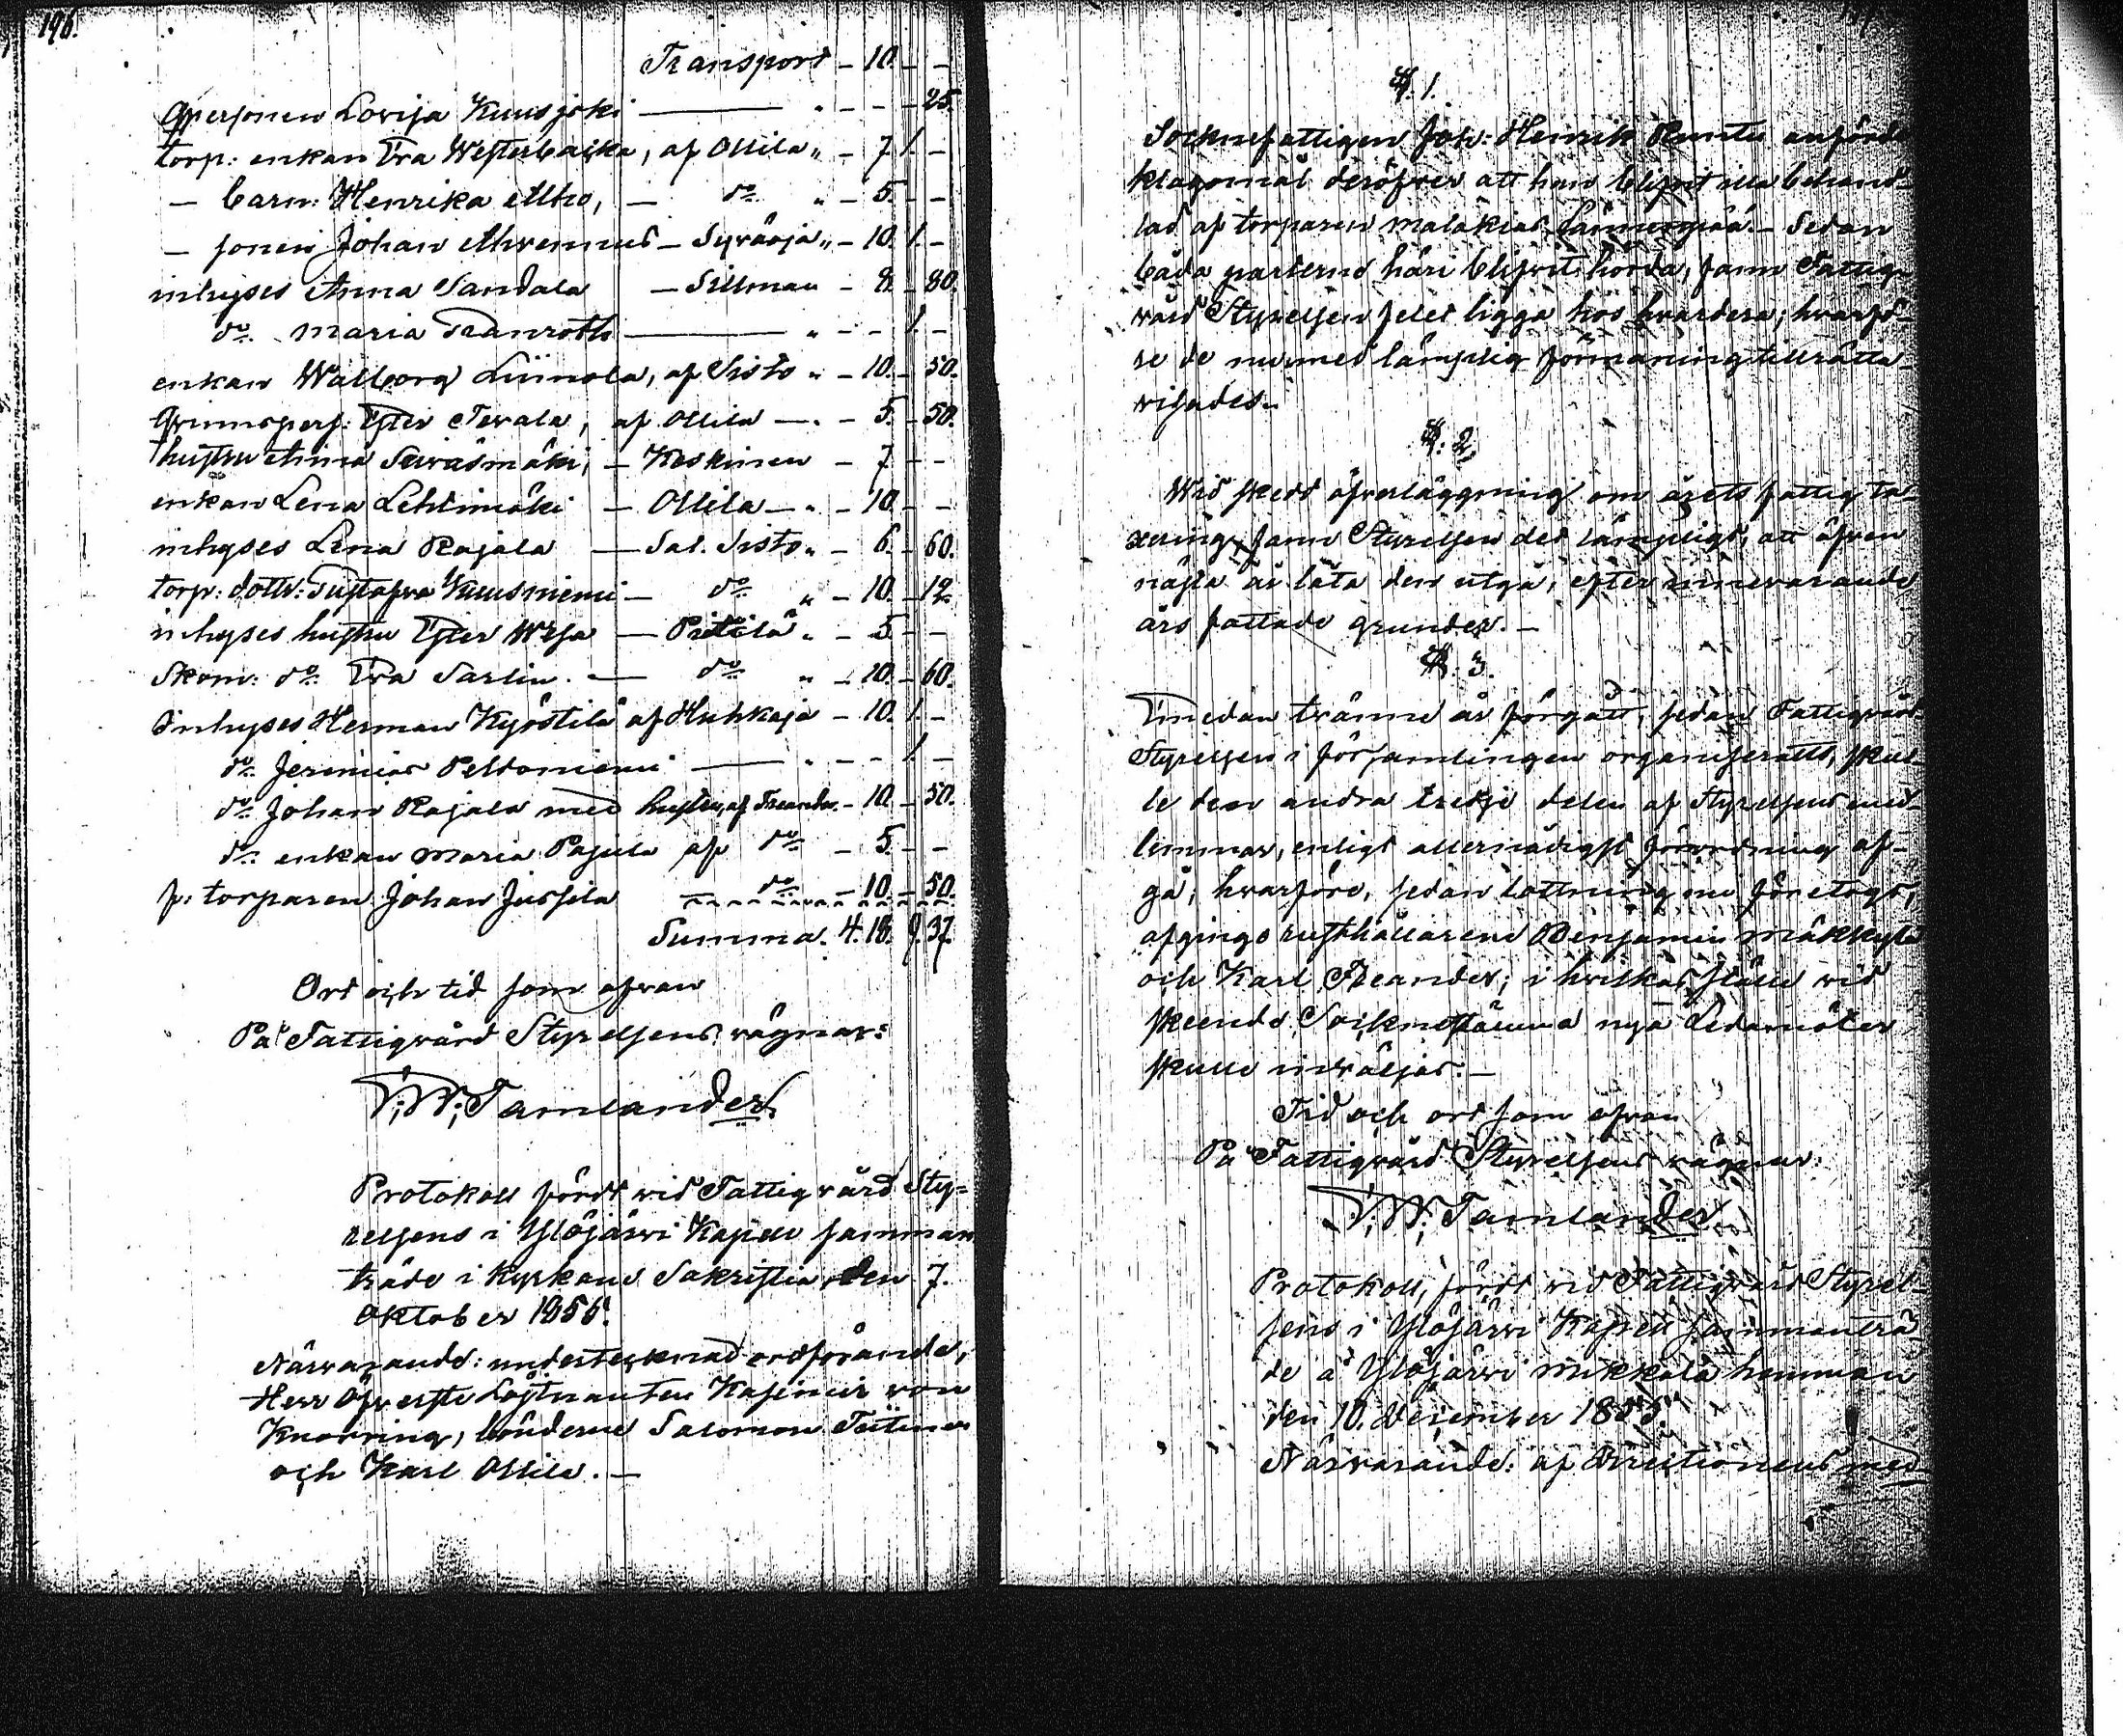 196.
Transport – 10. – –
Qpersonen Lovisa Kuusjoki – – – 25.
torp: enkan Eva Westerbacka, af Ollila „ – 7. 1. –
– barn: Henrika Alho, – do „ – 5. – –
– sonen Johan Ahrenius – Syväoja „ – 10. 1. –
inhyses Anna Sandala – Sillman – 8. – 80.
do Maria Granroth – „ – – 1. –
enkan Walborg Liinola, af Sisto „ – 10. – 50.
Qvinnspers: Ester Terala, af Ollila – . – 5. – 50.
hustru Anna Seiväsmäki, – Keskinen – 7. – –
enkan Lena Lehtimäki – Ollila – „ – 10. – –
inhyses Lena Rajala – Sal. Sisto „ – 6. – 60.
torp: dottr: Gustafva Kuusniemi – do „ – 10. – 12.
inhyses hustru Ester Wesa – Pietilä „ – 5. – –
Skom: do Eva Sarlin. – do „ – 10. – 60.
Inhyses Herman Kyöstilä af Huhkaja – 10. 1. –
do Jeremias Peltoniemi – „ – – 1. –
do Johan Rajala med hustru, af Freander. – 10. – 50.
do enkan Maria Pajula af do – 5. – –
f: torparen Johan Jussila do – 10. – 50.
Summa. 4. 18. 9. 37.
Ort och tid som ofvan
På Fattigvård Styrelsens vägnar:
F: W: Tamlander
Protokoll fördt vid Fattigvård Sty=
relsens i Ylöjärvi Kapell samman
träde i kyrkans Sakristia, den 7.
Oktober 1855.
Närvarande: undertecknad ordförande,
Herr Öfverste Löjtnanten Kasimir von
Knorring, bönderne Salomon Teitinen
och Karl Ollila. –
§. 1.
Socknefattigen Joh: Henrik Runtu anförde
klagomål deröfver att han blifvit illa behand-
lad af torparen Malakias Lännenpää. – Sedan
båda parterne häri blifvit hörda, fann Fattig-
vård Styrelsen felet ligga hos hvardera; hvarfö-
re de nu med lämplig förmaning tillrätta-
visades.
§. 2.
Wid skedd öfverläggning om årets fattig ta-
xering, fann Styrelsen det lämpligt, att äfven
nästa år låta den utgå, efter innevarande
års fattade grunder. –
§. 3.
Emedan tvänne år förgått, sedan Fattigvård
Styrelsen i församlingen organiserats, skul-
le den andra tredje delen af Styrelsens med-
lemmar, enligt allernådigst förordning af-
gå; hvarföre, sedan lottning nu företogs,
afgingo rusthållarene Benjamin Mäkkylä
och Karl Freander; i hvilkas ställe vid
skeende Socknestämma nya Ledamöter
skulle inväljas. –
Tid och ort som ofvan
På Fattigvård Styrelsens vägnar:
F: W: Tamlander
Protokoll, fördt vid Fattigvård Styrel-
sens i Ylöjärvi Kapell sammanträ-
de å Ylöjärvi Mikkola hemman
den 10. December 1855.
Närvarande: af Direktionens med